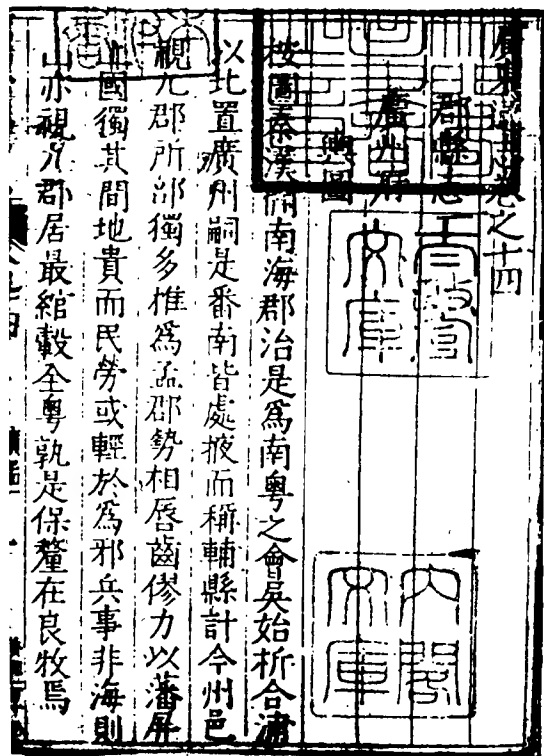 廣東通志卷之十四
郡縣志一
廣州府
輿圖
按圖秦漢开南海郡治是爲南粤之會吳始析合浦
以北置廣州嗣是番南皆處掖而稱輔縣計今州邑
視九郡所部獨多推爲孟郡勢相唇齒僇力以藩屏
國獨其間地貴而民勞或輕於爲邪兵事非海則
山亦視九郡居最綰轂全粤孰是保釐在良牧焉
内閣
文庫
文庫